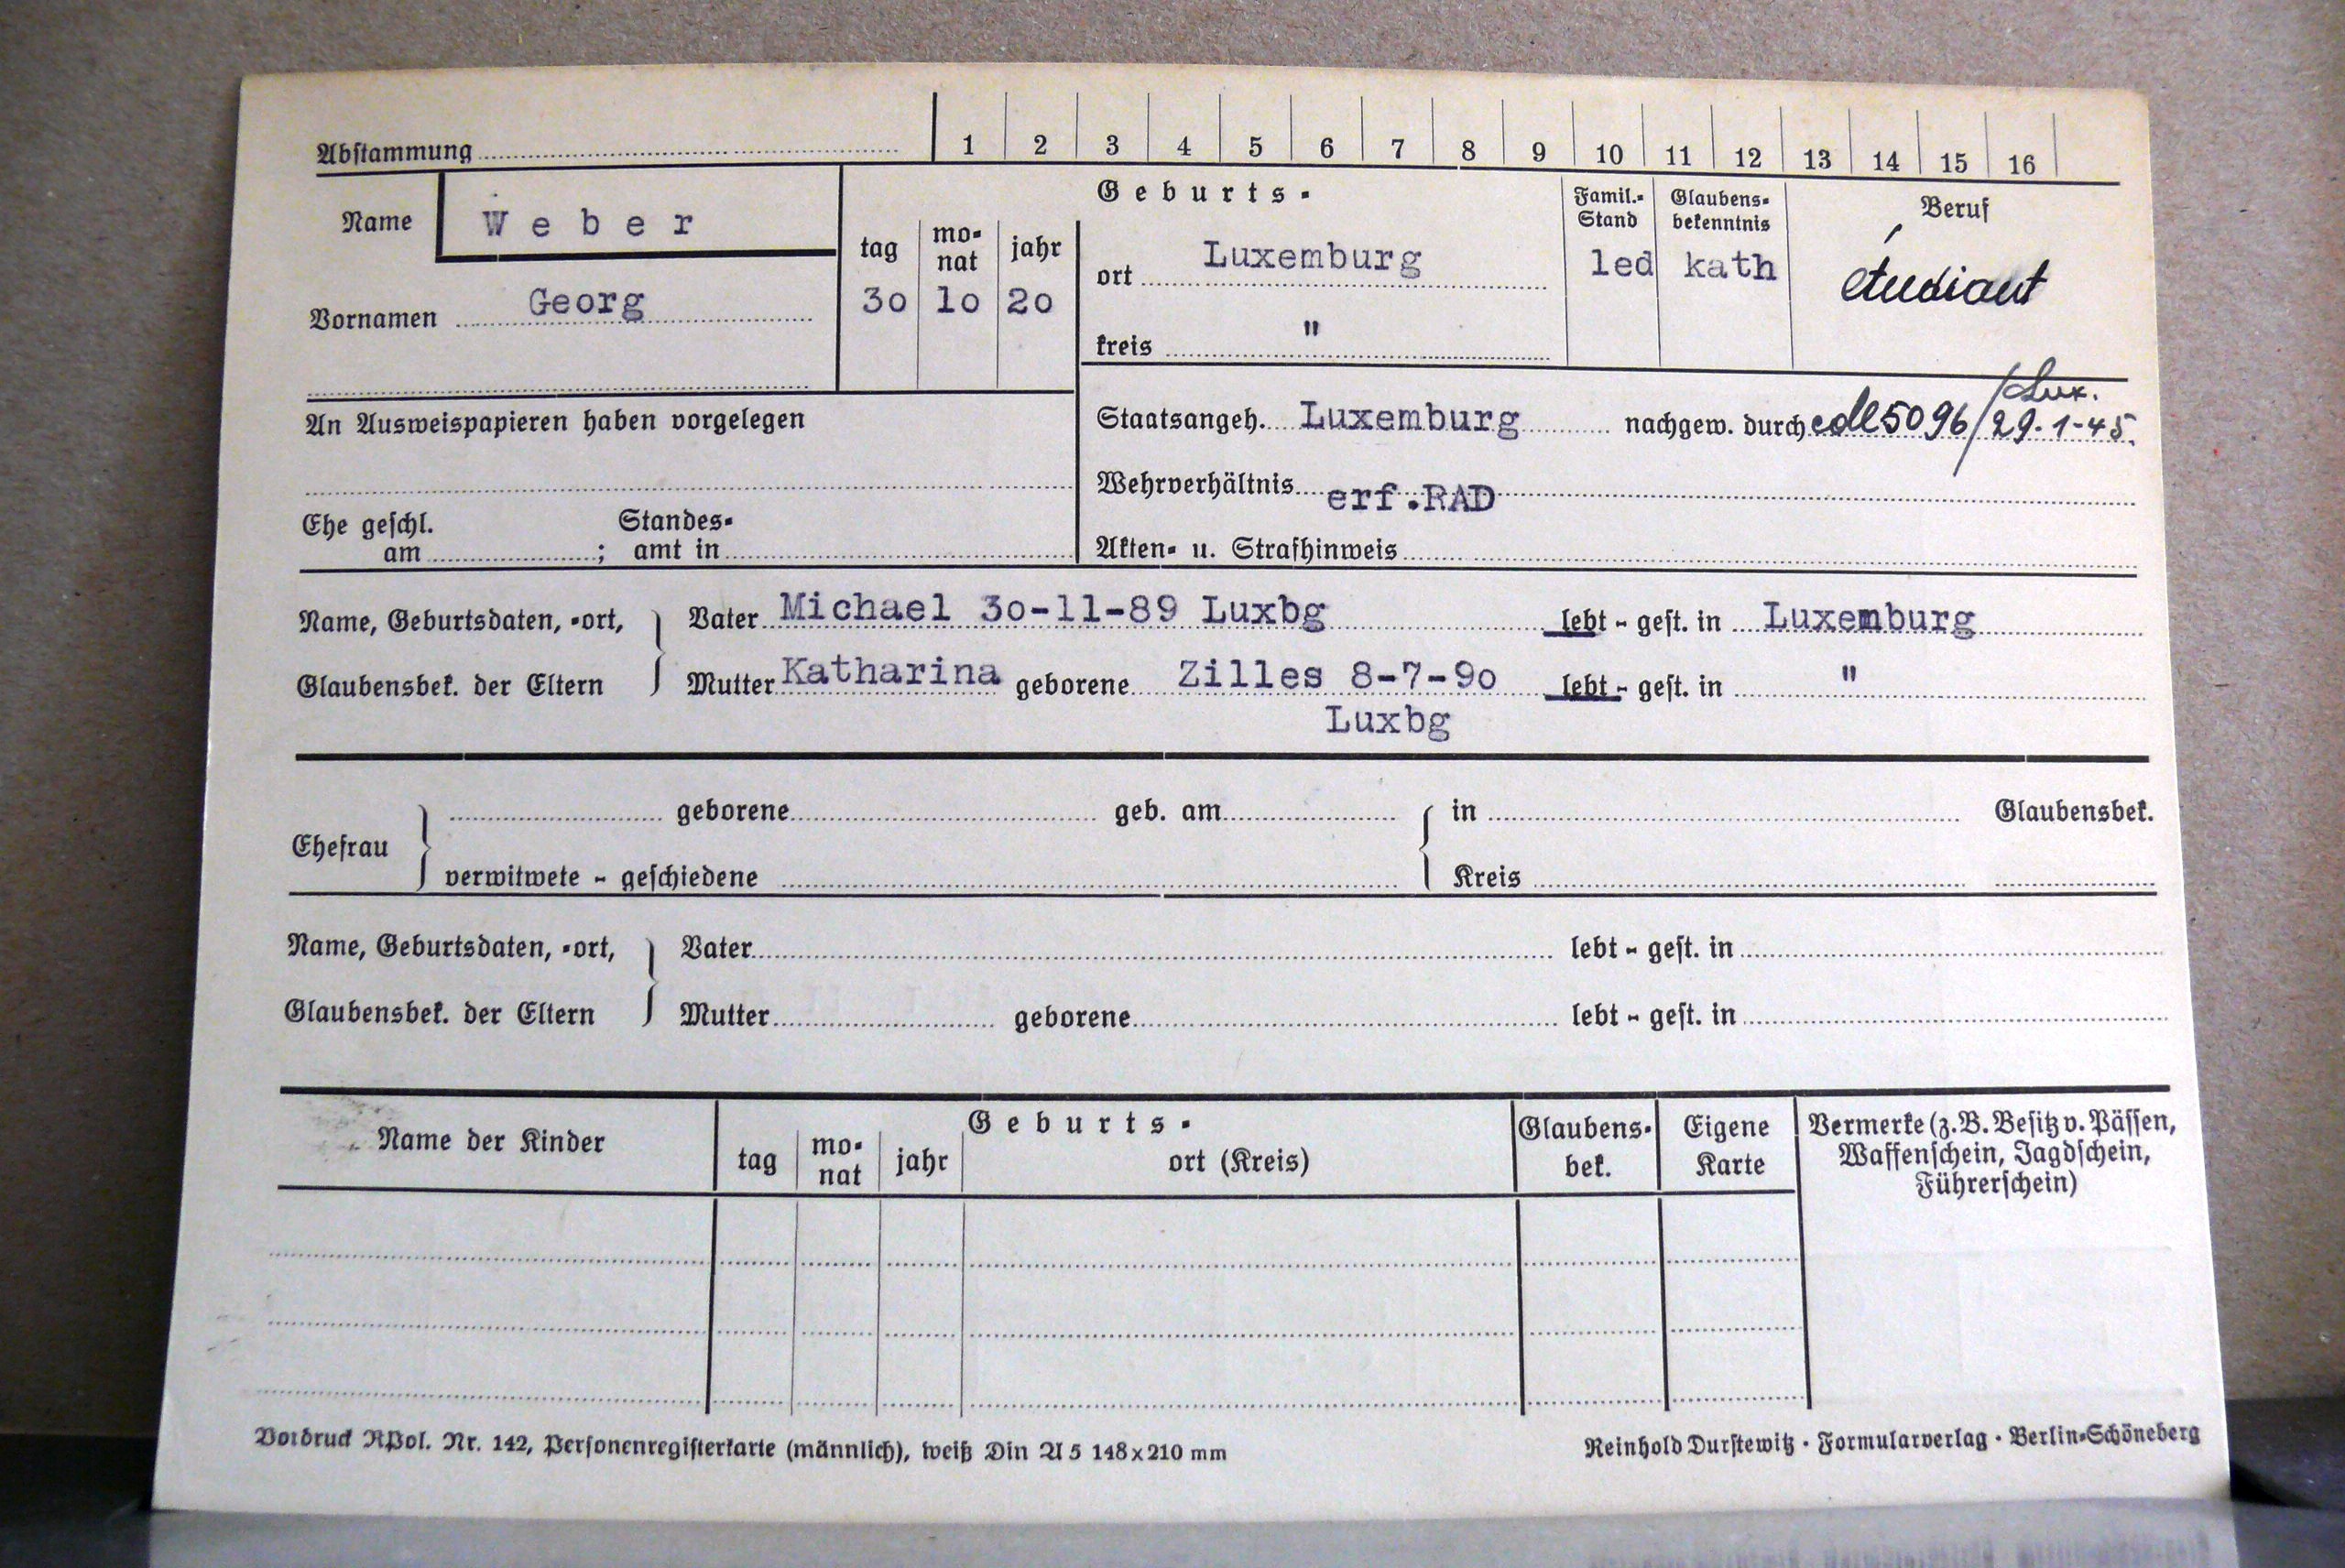 Abstammung 1 2 3 4 5 6 7 8 9 10 11 12 13 14 15 16
Name Weber
Vornamen Georg
Geburts-
tag monat jahr
30 10 20
ort Luxemburg
kreis "
Famil.-Stand
led
Glaubens-bekenntnis
kath
Beruf
étudiant
An Ausweispapieren haben vorgelegen
Ehe geschl. am ; Standes-amt in
Staatsangeh. Luxemburg nachgew. durch cdl 5096/Lux. 29-1-45.
Wehrverhältnis erf.RAD
Akten- u. Strafhinweis
Name, Geburtsdaten, -ort, Vater Michael 30-11-89 Luxbg lebt - gest. in Luxemburg
Glaubensbek. der Eltern Mutter Katharina geborene Zilles 8-7-90 lebt - gest. in "
Luxbg
Ehefrau
geborene geb. am in Glaubensbek.
verwitwete - geschiedene Kreis
Name, Geburtsdaten, -ort, Vater lebt - gest. in
Glaubensbek. der Eltern Mutter geborene lebt - gest. in
Name der Kinder
Geburts-
tag mo-nat jahr ort (Kreis)
Glaubens-
bek.
Eigene
Karte
Vermerke (z. B. Besitz v. Pässen,
Waffenschein, Jagdschein,
Führerschein)
Vordruck RPol. Nr. 142, Personenregisterkarte (männlich), weiß Din A 5 148x210 mm
Reinhold Durstewitz · Formularverlag · Berlin-Schöneberg